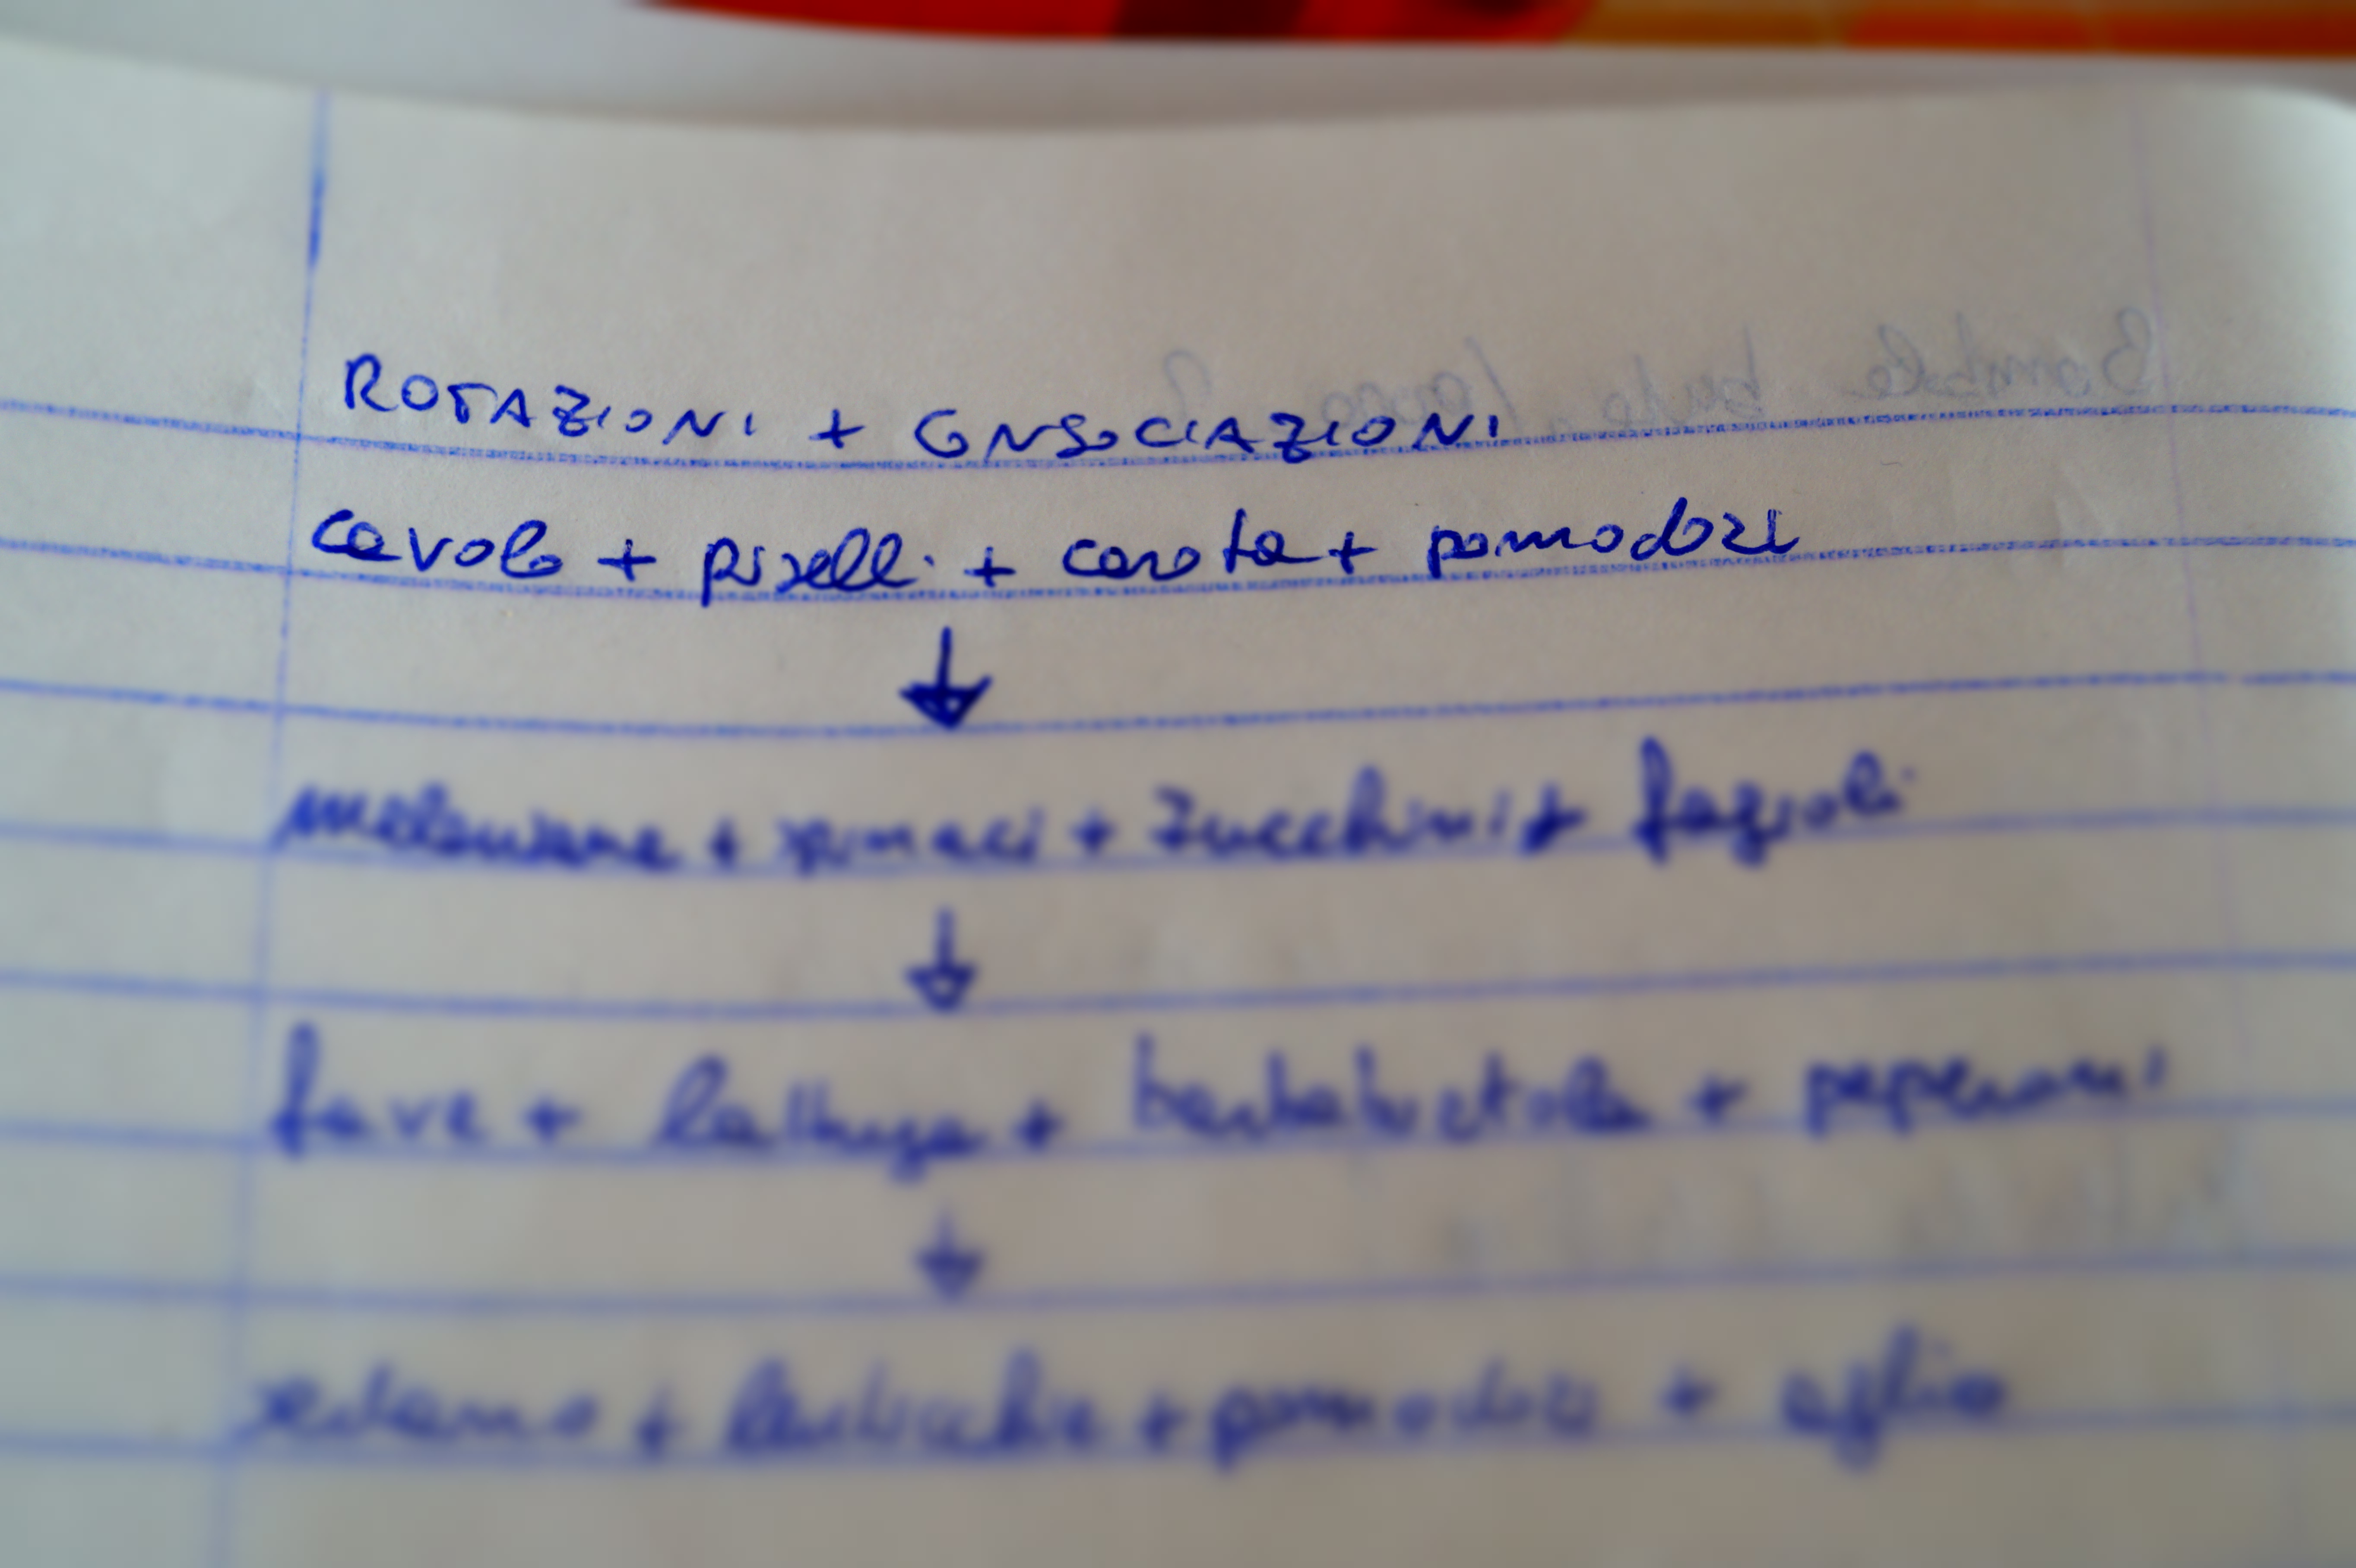 ROTAZIONI + CONSOCIAZIONI
cavolo + piselli + carota + pomodori
↓
melanzane + spinaci + zucchini + fagioli
↓
fave + lattuga + barbabietola + peperoni
↓
sedano + lenticchie + pomodori + aglio